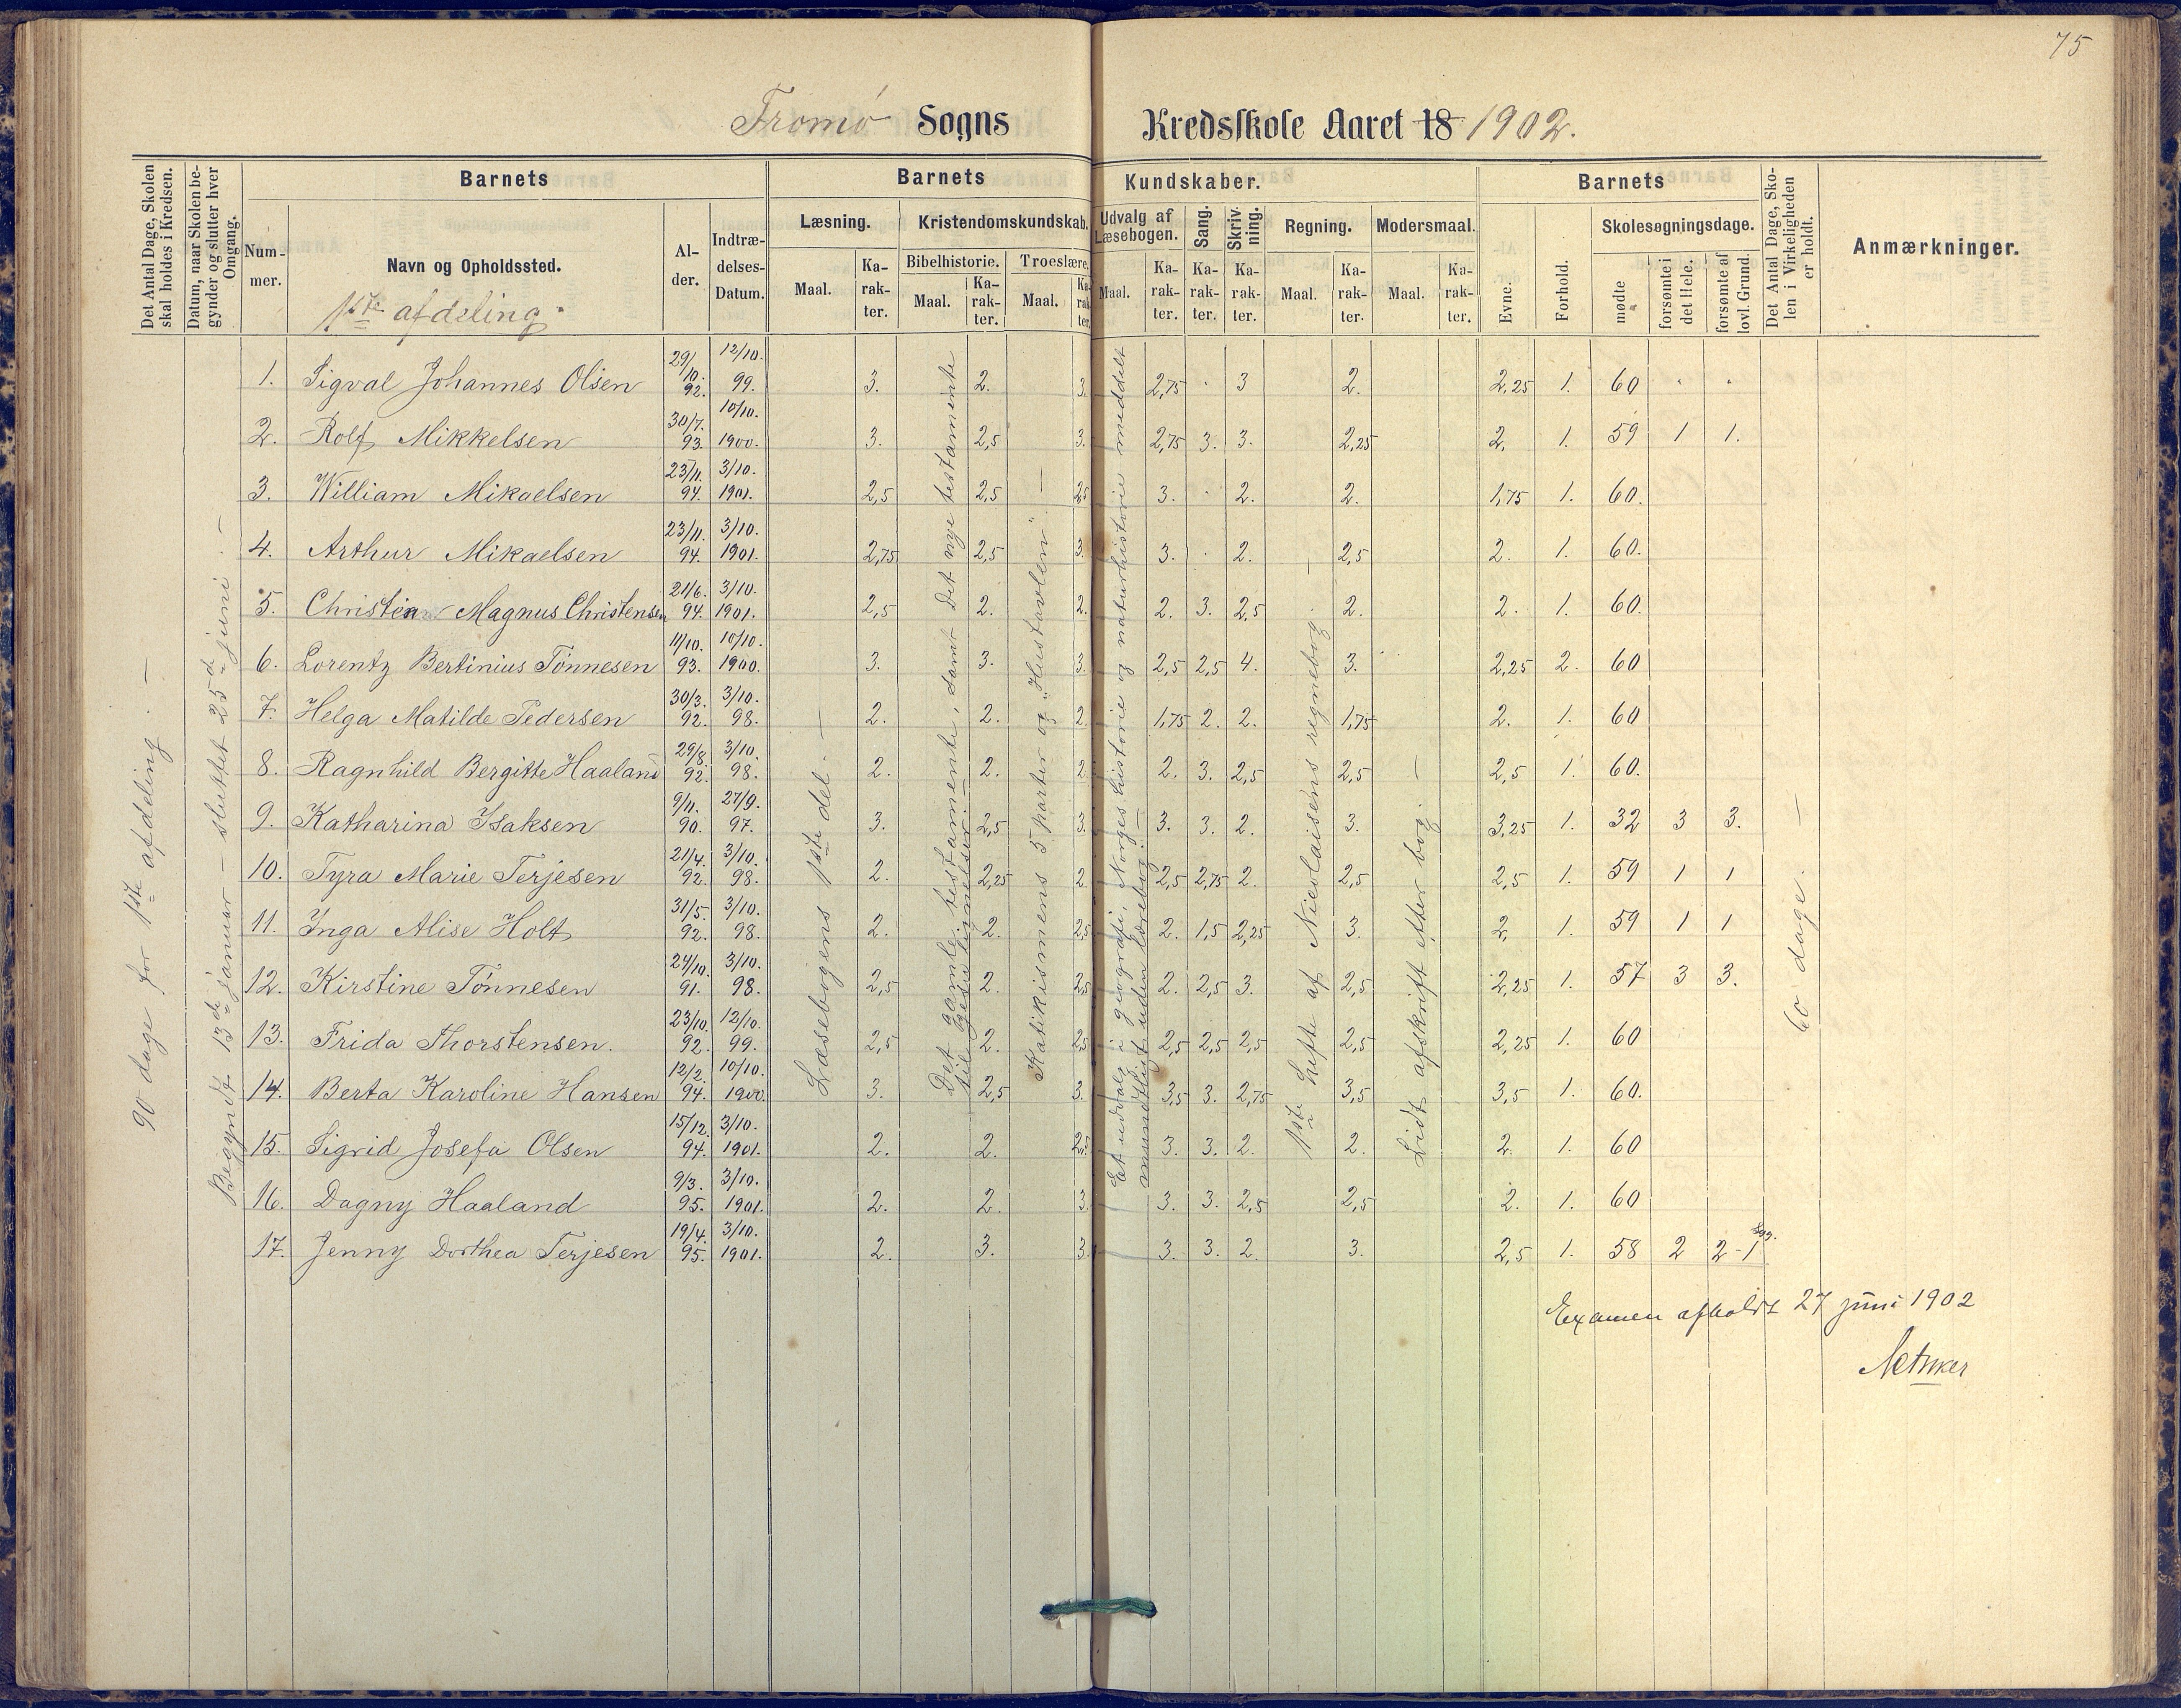 75
Tromø Sogns Kredsskole Aaret 18 1902.
Det Antal Dage, Skolen skal holdes i Kredsen.
Datum, naar Skolen begynder og slutter hver Omgang.
Barnets
Nummer.
Navn og Opholdssted.
1ste afdeling.
Alder.
Indtrædelses-Datum.
Barnets Kundskaber.
Læsning. Maal. Karakter.
Kristendomskundskab. Bibelhistorie. Maal. Karakter. Troeslære. Maal. Karakter.
Udvalg af Læsebogen. Maal. Karakter.
Sang. Karakter.
Skrivning. Karakter.
Regning. Maal. Karakter.
Modersmaal. Maal. Karakter.
Barnets
Evne. Forhold.
Skolesøgningsdage. mødte forsømte i det Hele. forsømte af lovl. Grund.
Det Antal Dage, Skolen i Virkeligheden er holdt.
Anmærkninger.
90 dage for 1ste afdeling. —
Begyndt 13de januar — sluttet 25de juni. —
1. Sigval Johannes Olsen 29/10. 92. 12/10. 99. 3. 2. 3. 2,75 · 3 2. 2,25 1. 60 " "
2. Rolf Mikkelsen 30/7. 93. 10/10. 1900. 3. 2,5 3. 2,75 3. 3. 2,25 2. 1. 59 1 1.
3. William Mikaelsen 23/11. 94. 3/10. 1901. 2,5 2,5 2,5 3. · 2. 2. 1,75 1. 60.
4. Arthur Mikaelsen 23/11. 94. 3/10. 1901. 2,75 2,5 3. 3. · 2. 2,5 2. 1. 60.
5. Christian Magnus Christensen 21/6. 94. 3/10. 1901. 2,5 2. 2. 2. 3. 2,5 2. 2. 1. 60.
6. Lorentz Bertinius Tönnesen 11/10. 93. 10/10. 1900. 3. 3. 3. 2,5 2,5 4. 3. 2,25 2. 60
7. Helga Matilde Pedersen 30/3. 92. 3/10. 98. 2. 2. 2. 1,75 2. 2. 1,75 2. 1. 60
8. Ragnhild Bergitte Haaland 29/8. 92. 3/10. 98. 2. 2. 2. 2. 3. 2,5 2,5 2,5 1. 60.
9. Katharina Isaksen 9/11. 90. 27/9. 97. 3. 2,5 3. 3. 3. 2. 3. 3,25 1. 32 3 3.
10. Tyra Marie Terjesen 21/4. 92. 3/10. 98. 2. 2,25 2. 2,5 2,75 2. 2,5 2,5 1. 59 1 1
11. Inga Alise Holt 31/5. 92. 3/10. 98. 2. 2. 2,5 2. 1,5 2,25 3. 2. 1. 59 1 1
12. Kirstine Tönnesen 24/10. 91. 3/10. 98. 2,5 2. 2,5 2. 2,5 3. 2,5 2,25 1. 57 3 3.
13. Frida Thorstensen. 23/10. 92. 12/10. 99. 2,5 2. 2,5 2,5 2,5 2,5 2,5 2,25 1. 60
14. Berta Karoline Hansen 12/2. 94. 10/10. 1900. 3. 2,5 3. 3,5 3. 2,75 3,5 3,5 1. 60.
15. Sigrid Josefa Olsen 15/12. 94. 3/10. 1901. 2. 2. 2,5 3. 3. 2. 2. 2. 1. 60
16. Dagny Haaland 9/3. 95. 3/10. 1901. 2. 2. 3. 3. 3. 2,5 2,5 2. 1. 60
17. Jenny Dorthea Terjesen 19/4. 95. 3/10. 1901. 2. 3. 3. 3. 3. 2. 3. 2,5 1. 58 2 2-1
Læsebogens 1ste del. —
Det gamle testamente, samt Det nye testamente til Jesu lignelser. —
Katikismens 5 parter og „Hustavlen". —
Et udvalg i geografi, Norges historie og naturhistorie meddelt mundtligt uden lærebog. —
1ste hefte af Nicolaisens regnebog —
Lidt afskrift efter bog. —
60 dage. —
Examen afholdt 27 juni 1902